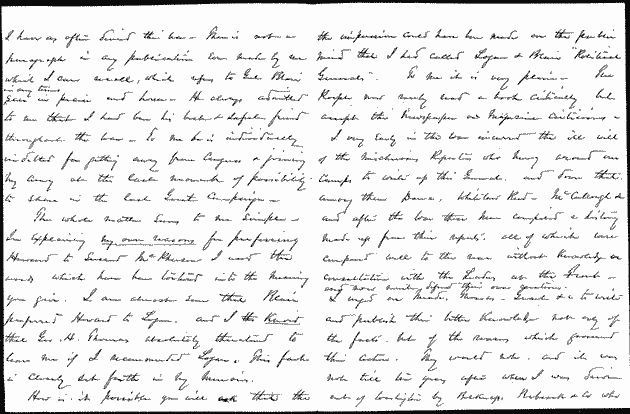 I have so often denied this has - There is not a
paragraph in any publication ever made by me
which I can recall, which refers to Genl Blair
in any terms
save in praise and honor - He always admitted
to me that I had been his best & fast friend
throughout the war - To me he is individually
indebted for getting away from Congress & joining
my army at the last moment of possibility
to share in the last Great Campaign -
The whole matter seems to me simple -
In explaining my own reasons for preferring
Howard to Succeed McPherson I used the
words which have been tortured into the meaning
you give. I am almost sure that Blair
preferred Howard to Logan. and I
that Geo. H. Thomas absolutely threatened to
leave me if I recommended Logan. This fact
is clearly set forth in my Memoirs.
How is it possible you will ask that the
the impression could have been made on the public
mind that I had called Logan & Blair "Political
Generals". To me it is very plain - The
People now rarely read a book critically but
accept the Newspaper or Magazine criticisms -
I very early in the war incurred the ill will
of the mischievous Reporters who hung around our
Camps to write up this General and down that.
among them Dana, Whitelaw Reid - McCullough &c
and after the war these men composed a history
made up from their reports. all of which were
composed well to the rear without Knowledge or
consultation with the Leaders at the Front -
and now mainly upon their own
I urged on Meade, Thomas - Grant &c to write
and publish their better Knowledge not only of
the facts. but of the reasons which governed
their actions. They would not. and it was
not till ten years after when I was
out of by Belknap, Babcock & Co who